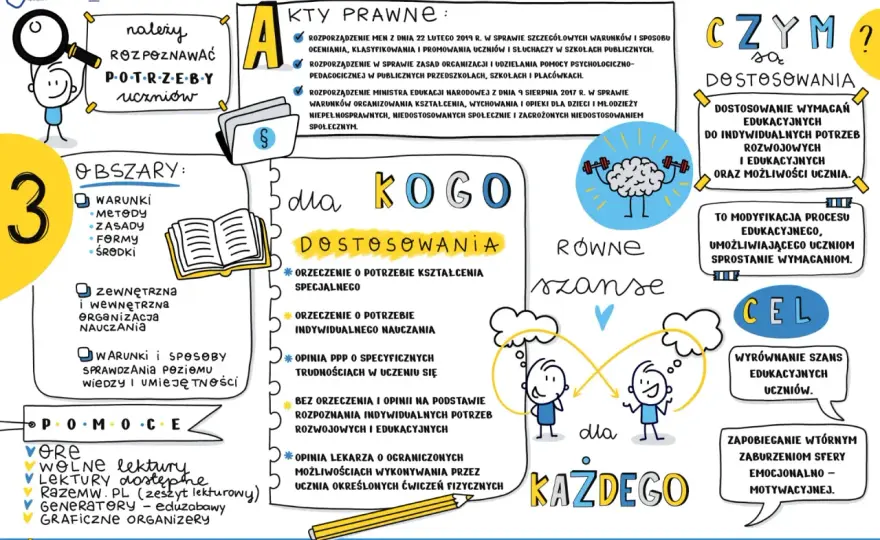 należy
ROZPOZNAWAĆ
P•O•T•R•Z•E•B•Y
uczniów
AKTY PRAWNE:
ROZPORZĄDZENIE MEN Z DNIA 22 LUTEGO 2019 R. W SPRAWIE SZCZEGÓŁOWYCH WARUNKÓW I SPOSOBU
OCENIANIA, KLASYFIKOWANIA I PROMOWANIA UCZNIÓW I SŁUCHACZY W SZKOŁACH PUBLICZNYCH.
ROZPORZĄDZENIE W SPRAWIE ZASAD ORGANIZACJI I UDZIELANIA POMOCY PSYCHOLOGICZNO-
PEDAGOGICZNEJ W PUBLICZNYCH PRZEDSZKOLACH, SZKOŁACH I PLACÓWKACH.
ROZPORZĄDZENIE MINISTRA EDUKACJI NARODOWEJ Z DNIA 9 SIERPNIA 2017 R. W SPRAWIE
WARUNKÓW ORGANIZOWANIA KSZTAŁCENIA, WYCHOWANIA I OPIEKI DLA DZIECI I MŁODZIEŻY
NIEPEŁNOSPRAWNYCH, NIEDOSTOSOWANYCH SPOŁECZNIE I ZAGROŻONYCH NIEDOSTOSOWANIEM
SPOŁECZNYM.
§
CZYM
?
są
DOSTOSOWANIA
DOSTOSOWANIE WYMAGAŃ
EDUKACYJNYCH
DO INDYWIDUALNYCH POTRZEB
ROZWOJOWYCH
I EDUKACYJNYCH
ORAZ MOŻLIWOŚCI UCZNIA.
TO MODYFIKACJA PROCESU
EDUKACYJNEGO,
UMOŻLIWIAJĄCEGO UCZNIOM
SPROSTANIE WYMAGANIOM.
CEL
WYRÓWNANIE SZANS
EDUKACYJNYCH
UCZNIÓW.
ZAPOBIEGANIE WTÓRNYM
ZABURZENIOM SFERY
EMOCJONALNO –
MOTYWACYJNEJ.
3
OBSZARY:
WARUNKI
• METODY
• ZASADY
• FORMY
• ŚRODKI
ZEWNĘTRZNA
I WEWNĘTRZNA
ORGANIZACJA
NAUCZANIA
WARUNKI I SPOSOBY
SPRAWDZANIA POZIOMU
WIEDZY I UMIEJĘTNOŚCI
dla KOGO
DOSTOSOWANIA
ORZECZENIE O POTRZEBIE KSZTAŁCENIA
SPECJALNEGO
ORZECZENIE O POTRZEBIE
INDYWIDUALNEGO NAUCZANIA
OPINIA PPP O SPECYFICZNYCH
TRUDNOŚCIACH W UCZENIU SIĘ
BEZ ORZECZENIA I OPINII NA PODSTAWIE
ROZPOZNANIA INDYWIDUALNYCH POTRZEB
ROZWOJOWYCH I EDUKACYJNYCH
OPINIA LEKARZA O OGRANICZONYCH
MOŻLIWOŚCIACH WYKONYWANIA PRZEZ
UCZNIA OKREŚLONYCH ĆWICZEŃ FIZYCZNYCH
RÓWNE
szanse
dla
KAŻDEGO
P•O•M•O•C•E
ORE
WOLNE lektury
LEKTURY dostępne
RAZEMW.PL (zeszyt lekturowy)
GENERATORY - eduzabawy
GRAFICZNE ORGANIZERY